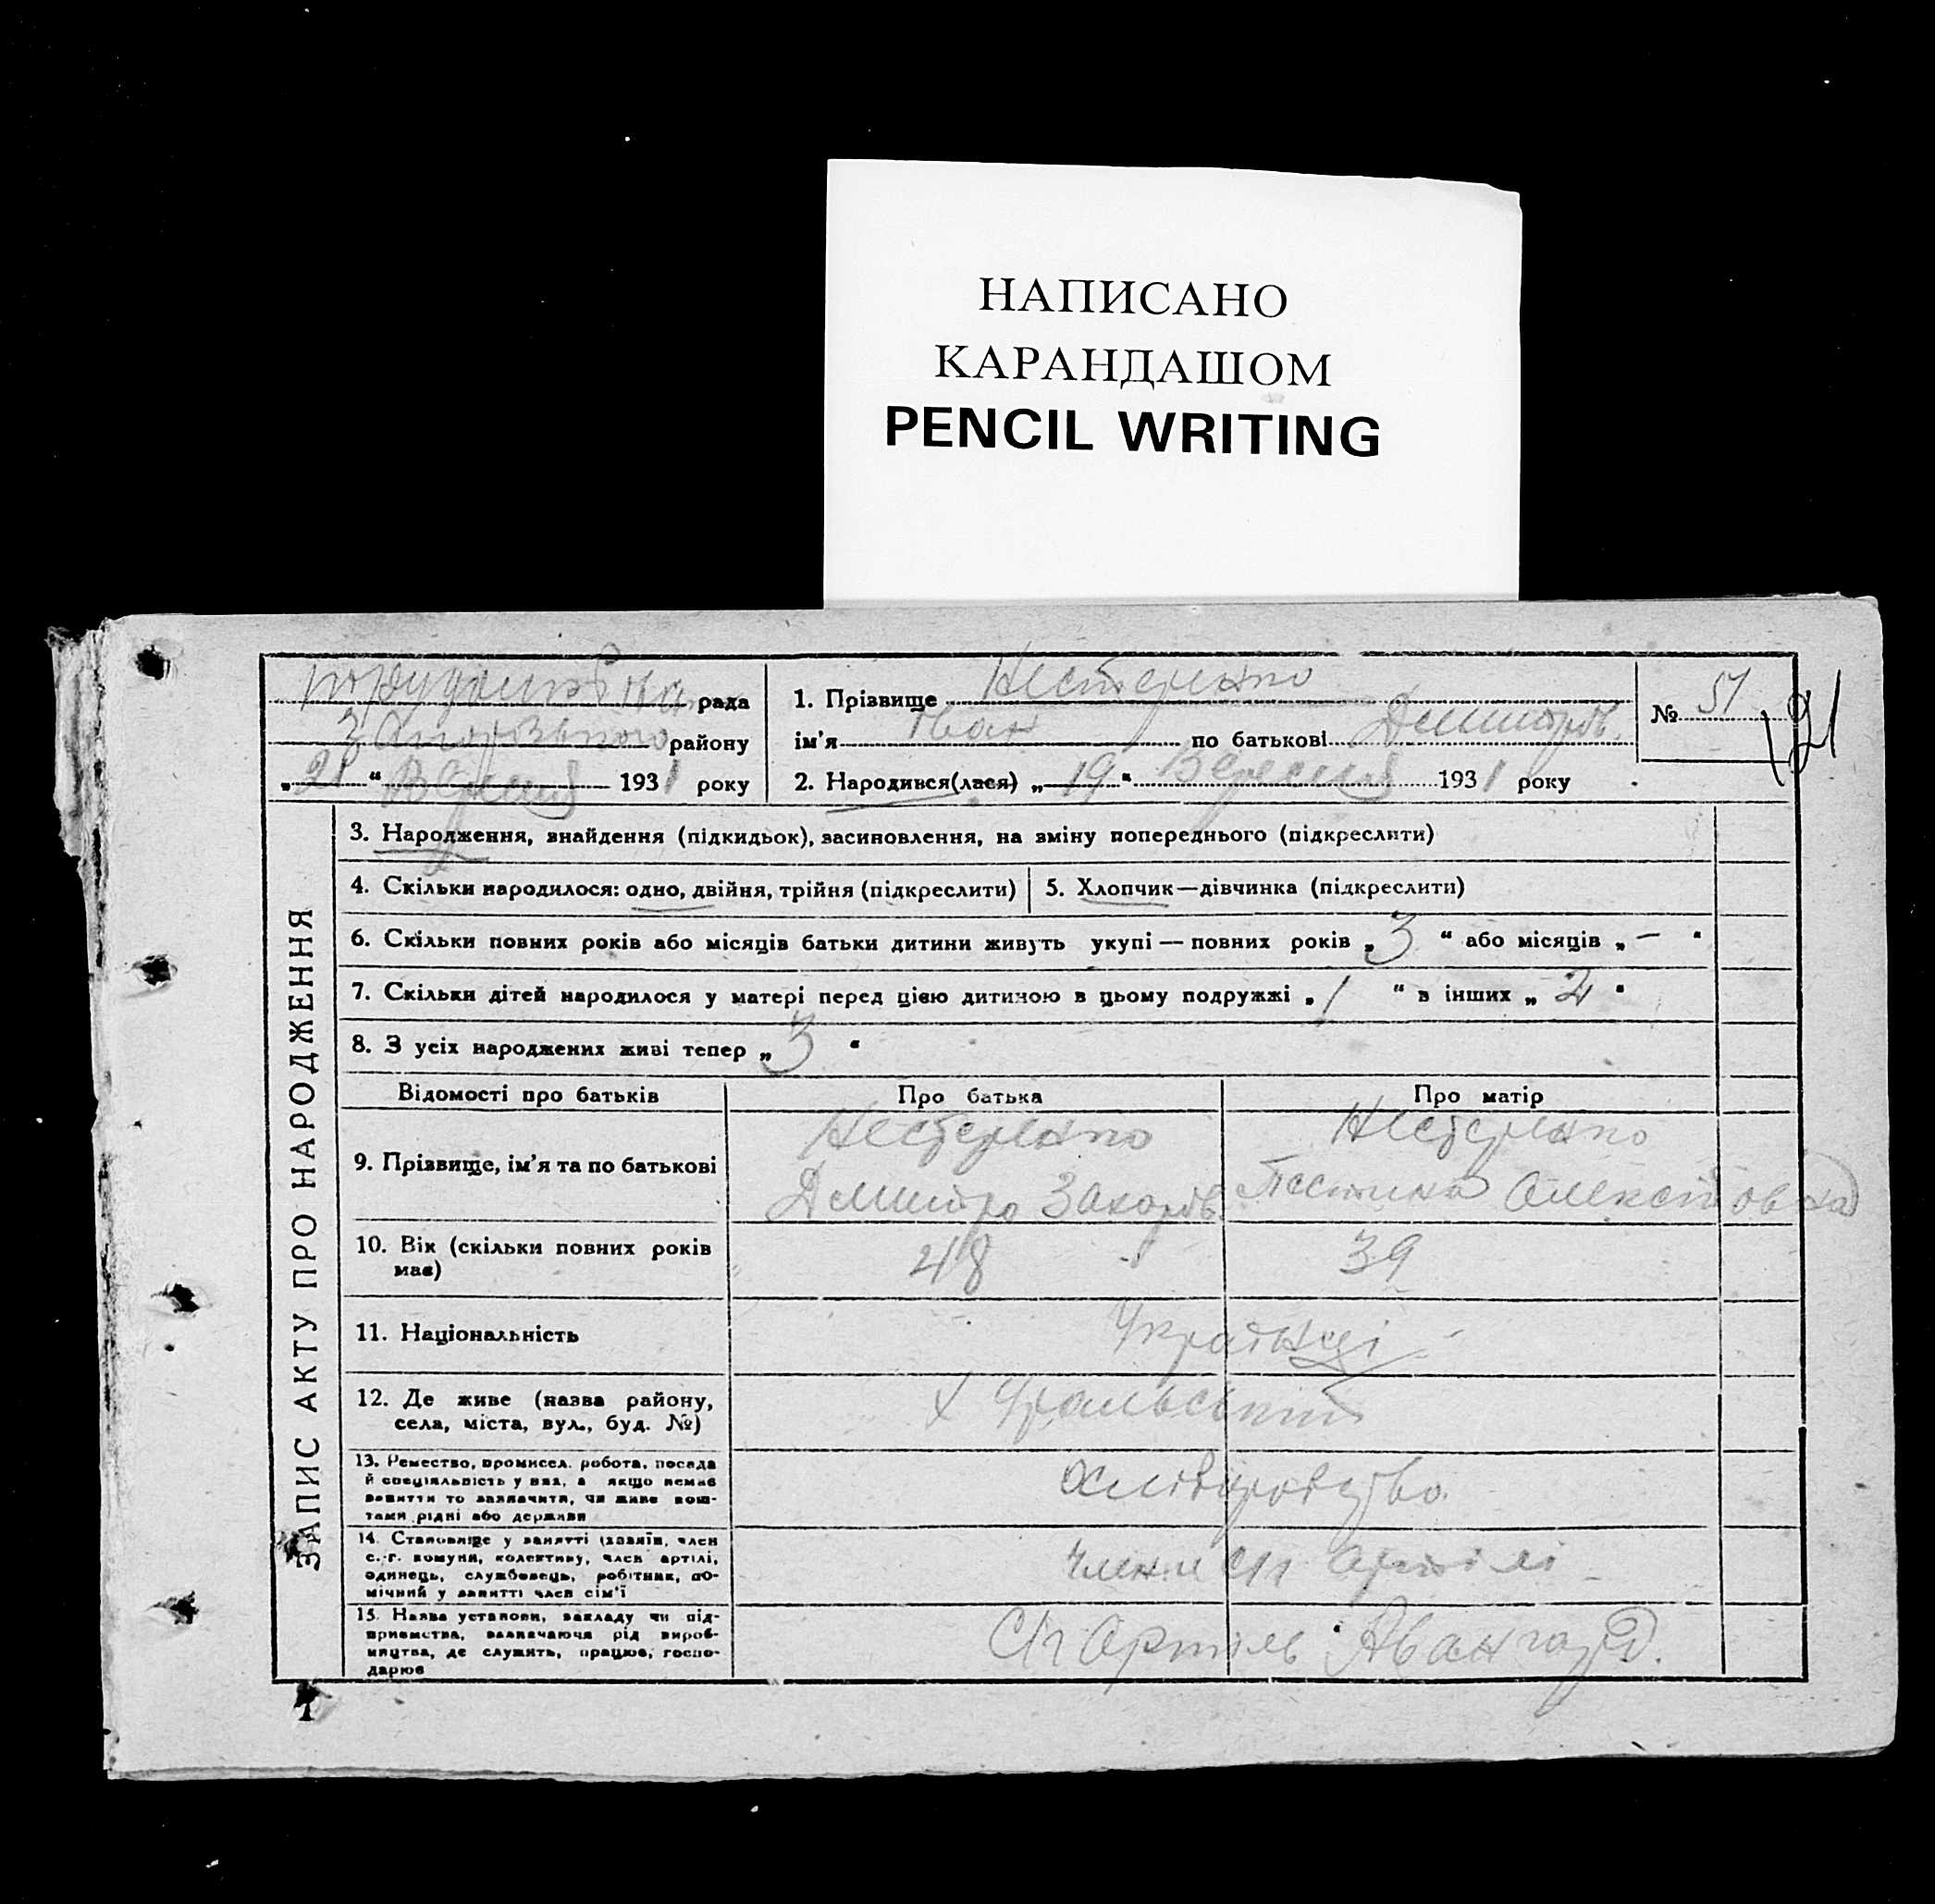 НАПИСАНО
КАРАНДАШОМ
PENCIL WRITING
рада
району
„21“ Вересня 1931 року
1. Прізвище Нестеренко
ім’я Іван по батькові Дмитров.
2. Народився(лася) „19“ Вересня 1931 року
№ 51
121
ЗАПИС АКТУ ПРО НАРОДЖЕННЯ
3. Народження, знайдення (підкидьок), засиновлення, на зміну попереднього (підкреслити)
4. Скільки народилося: одно, двійня, трійня (підкреслити)
5. Хлопчик—дівчинка (підкреслити)
6. Скільки повних років або місяців батьки дитини живуть укупі — повних років „3“ або місяців „—“
7. Скільки дітей народилося у матері перед цією дитиною в цьому подружжі „1“ в інших „2“
8. З усіх народжених живі тепер „3“
Відомості про батьків
Про батька
Про матір
9. Прізвище, ім’я та по батькові
Нестеренко
Дмитро Захаров.
Нестеренко
10. Вік (скільки повних років
має)
48
39
11. Національність
Українці
12. Де живе (назва району,
села, міста, вул., буд. №)
х Уральський
13. Ремество, промисел, робота, посада
й спеціяльність у них, а якщо немає
заняття то зазначити, чи живе кош-
тами рідні або держави
Хліборобство
14. Становище у занятті (хазяїн, член
с.-г. комуни, колективу, член артілі,
одинець, службовець, робітник, по-
мічний у занятті член сім’ї
члени С/г артілі
15. Назва установи, закладу чи під-
приємства, зазначаючи рід вироб-
ництва, де служить, працює, госпо-
дарює
С/г Артіль Авангард.